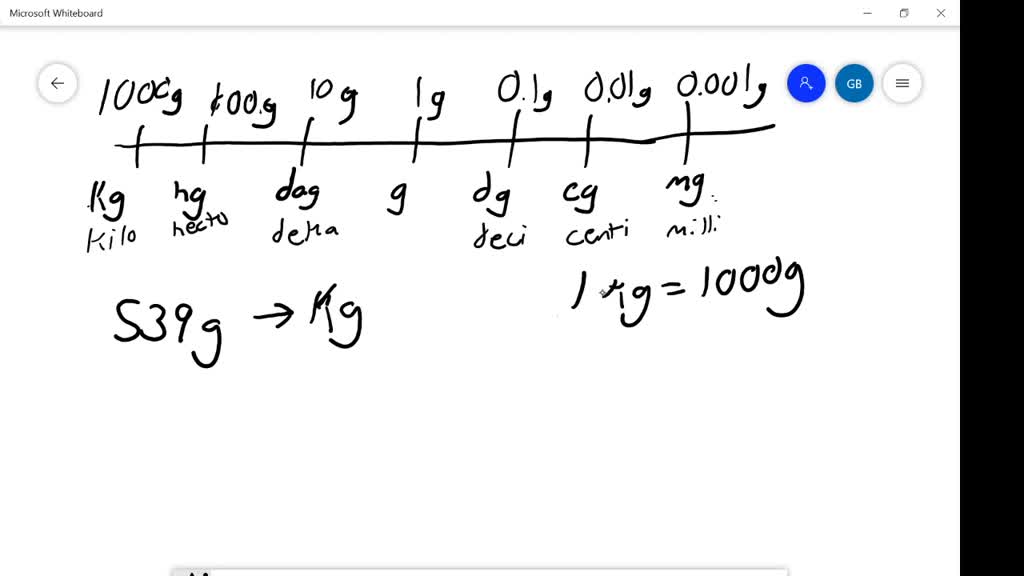 Microsoft Whiteboard
1000g 100g 10g 1g 0.1g 0.01g 0.001g
GB
Kg hg dag g dg cg mg
Kilo hecto deka deci centi milli
539g → Kg
1 Kg = 1000g